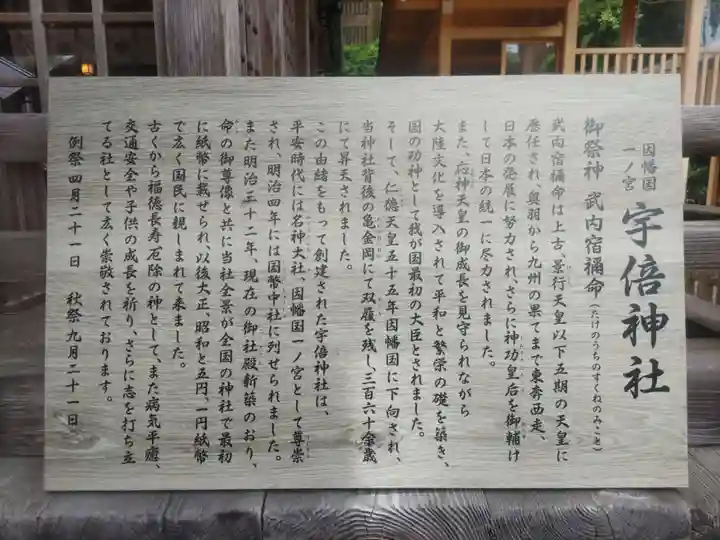 因幡国
一ノ宮
宇倍神社
御祭神 武内宿禰命(たけのうちのすくねのみこと)
武内宿禰命は上古、景行天皇以下五期の天皇に
歴任され、奥羽から九州の果てまで東奔西走、
日本の発展に努力され、さらに神功皇后を御輔け
して日本の統一に尽力されました。
また、応神天皇の御成長を見守られながら
大陸文化を導入されて平和と繁栄の礎を築き、
国の功神として我が国最初の大臣とされました。
そして、仁徳天皇五十五年因幡国に下向され、
当神社背後の亀金岡にて双履を残し、三百六十余歳
にて昇天されました。
この由緒をもって創建された宇倍神社は、
平安時代には名神大社、因幡国一ノ宮として尊崇
され、明治四年には国幣中社に列せられました。
また明治三十二年、現在の御社殿新築のおり、
命の御尊像と共に当社全景が全国の神社で最初
に紙幣に載せられ、以後大正、昭和と五円、一円紙幣
で広く国民に親しまれて来ました。
古くから福徳長寿厄除の神として、また病気平癒、
交通安全や子供の成長を祈り、さらに志を打ち立
てる社として広く崇敬されております。
例祭 四月二十一日 秋祭 九月二十一日